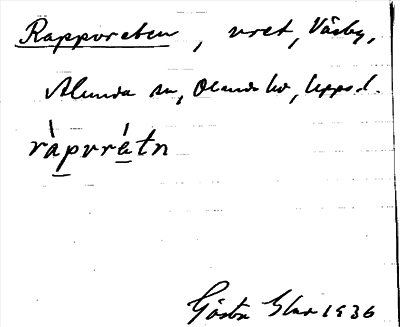 Rapporeten, vret, Väsby,
Alunda sn, Olands hd, Upps. l.
ràpvrétn
Gösta 1936